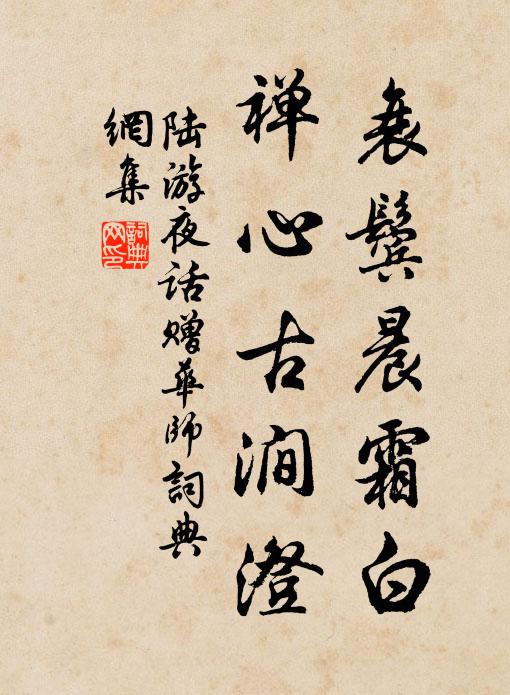 衰鬓晨霜白
禅心古涧澄
陆游夜话赠华师詞典
網集
詞典
网印